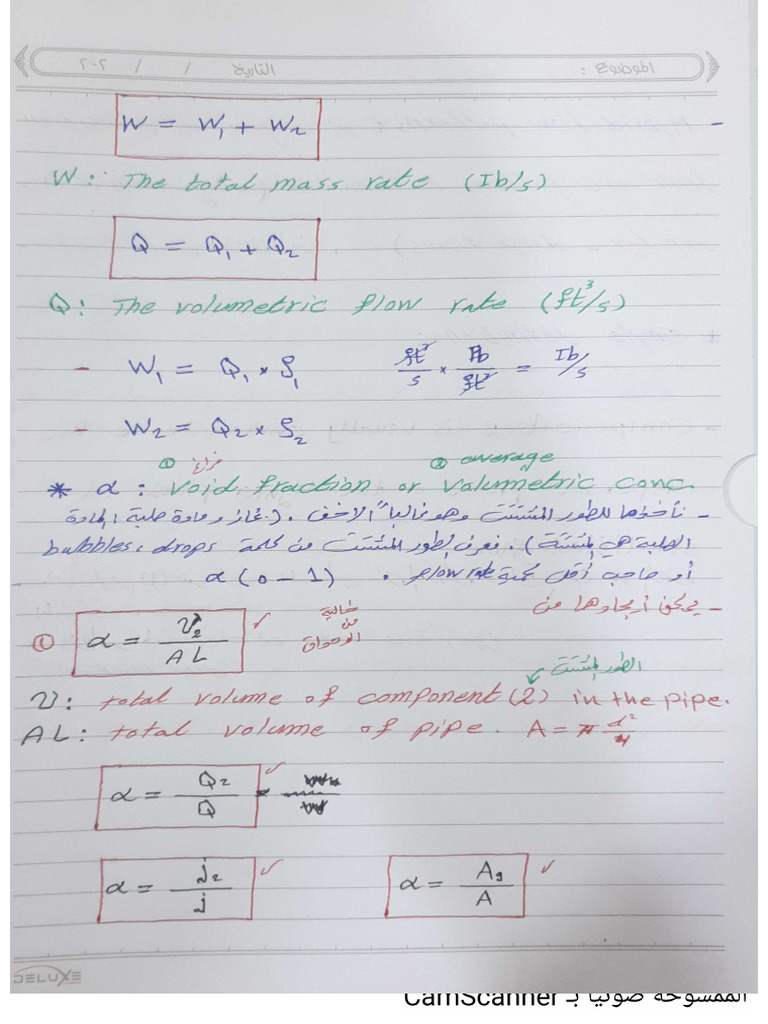 الموضوع : التاريخ / / ٢٠٢
- W = W₁ + W₂
W : The total mass rate (Ib/s)
Q = Q₁ + Q₂
Q : The volumetric flow rate (ft³/s)
- W₁ = Q₁ × ρ₁ ft³/s × Ib/ft³ = Ib/s
- W₂ = Q₂ × ρ₂
① فراغ ② average
* α : void fraction or volumetric conc.
- نأخذها للطور المشتت وهو غالباً الأخف . (غاز و مادة صلبة المادة
الصلبة هي المشتتة) . نعرف الطور المشتت من كلمة bubbles, drops
أو صاحب أقل كمية flow rate . α (0 - 1)
- يمكن إيجادها من
خالية
من
① α = V₂ / AL
الطور المشتت
V : total volume of component (2) in the pipe.
AL : total volume of pipe. A = π d²/4
α = Q₂ / Q =
α = j₂ / j α = A₉ / A
DELUXE
الممسوحة ضوئيا بـ CamScanner